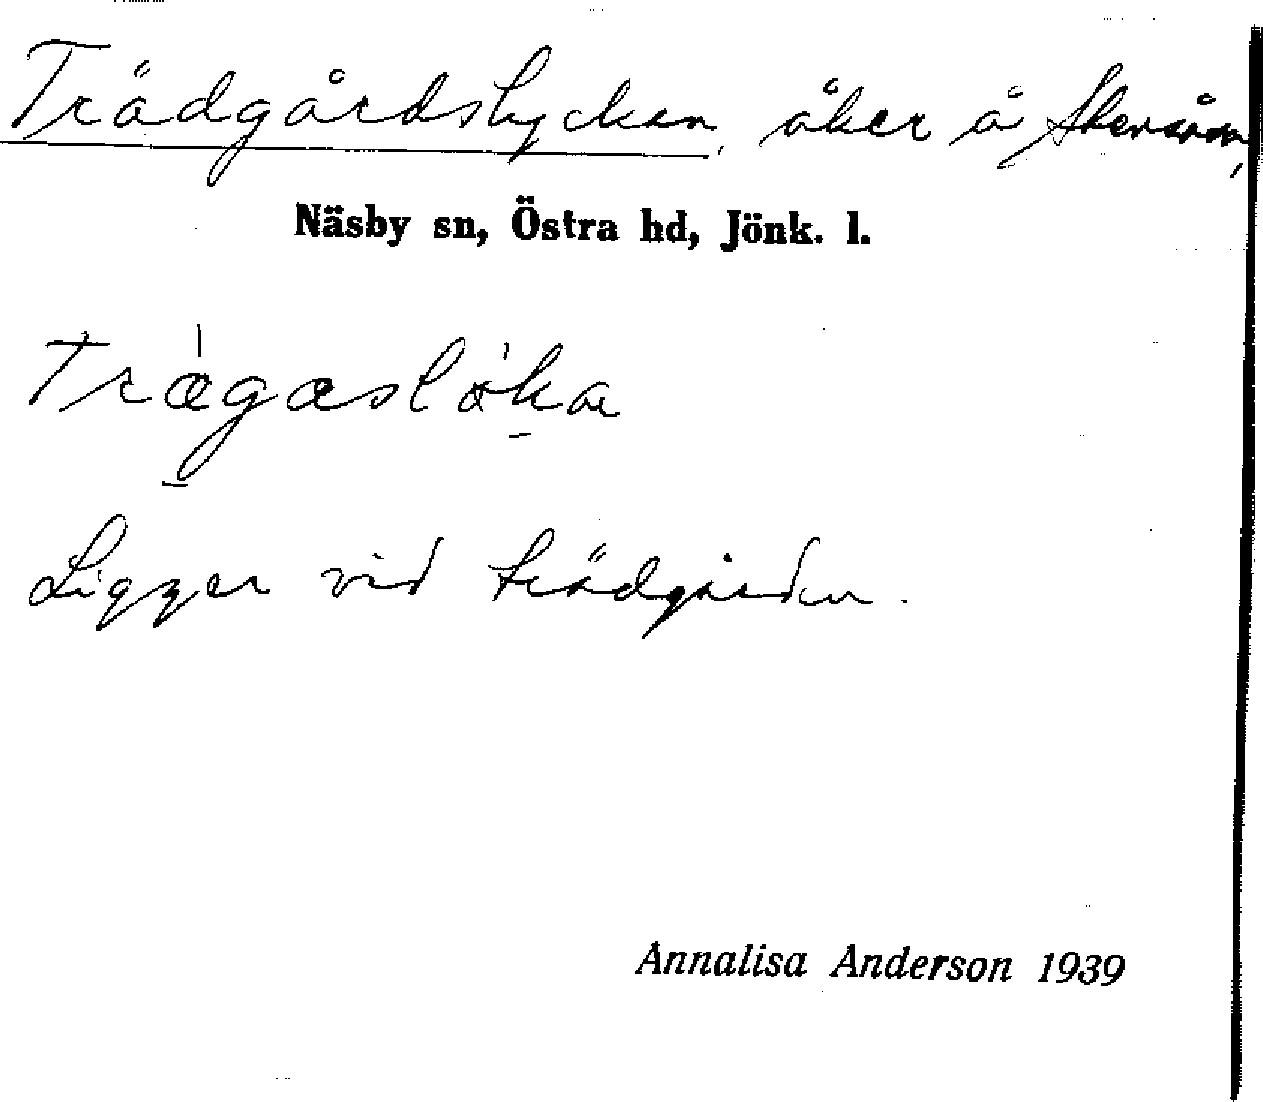 Trädgårdslyckan, åker å
Näsby sn, Östra hd, Jönk. l.
Ligger vid trädgården.
Annalisa Anderson 1939